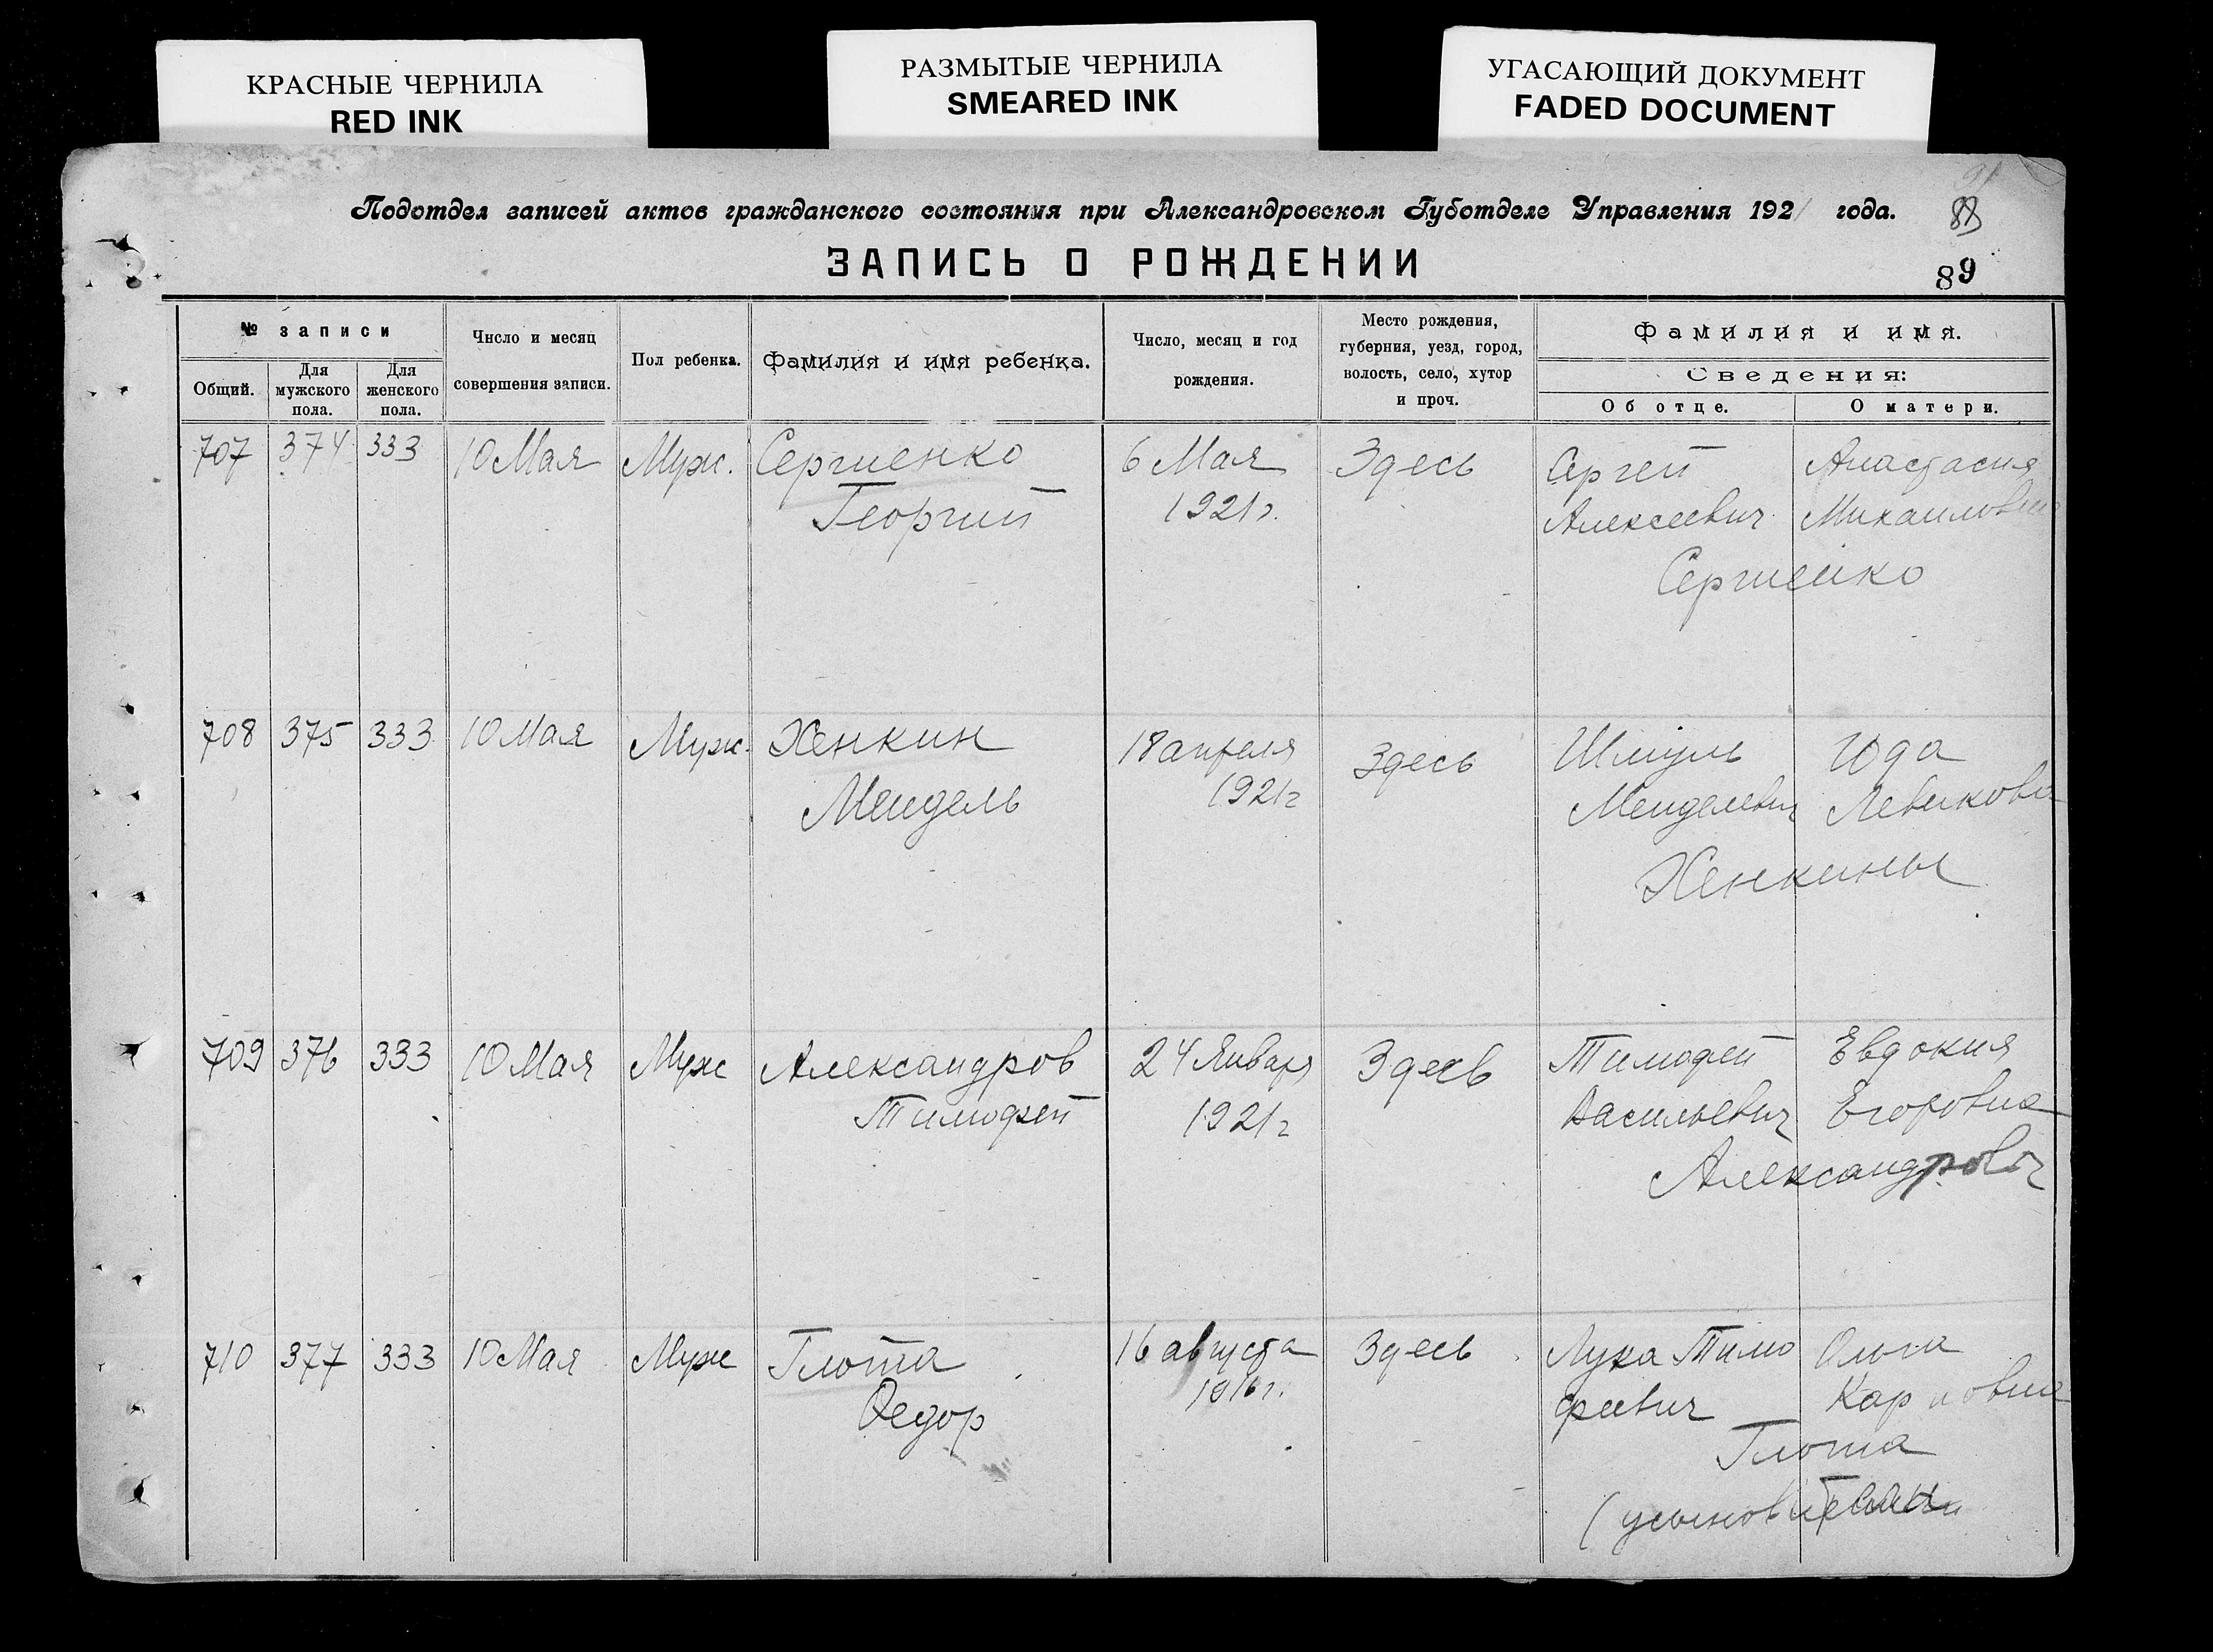 КРАСНЫЕ ЧЕРНИЛА
RED INK
РАЗМЫТЫЕ ЧЕРНИЛА
SMEARED INK
УГАСАЮЩИЙ ДОКУМЕНТ
FADED DOCUMENT
Подотдел записей актов гражданского состояния при Александровском Губотделе Управления 1921 года.
88
ЗАПИСЬ О РОЖДЕНИИ
89
№ записи
Общий.
Для мужского пола.
Для женского пола.
Число и месяц
совершения записи.
Пол ребенка.
Фамилия и имя ребенка.
Число, месяц и год
рождения.
Место рождения,
губерния, уезд, город,
волость, село, хутор
и проч.
Фамилия и имя.
Сведения:
Об отце.
О матери.
707 374 333 10 Мая Муж. Сергиенко 6 Мая Здесь Сергей Анастасия
Георгий 1921 г. Алексеевич Михаиловна
Сергиенко
708 375 333 10 Мая Муж. Хенкин 18 апреля Здесь Шмуль Юда
Мендель 1921 г Менделевич
Хенкины
709 376 333 10 Мая Муж Александров 24 Января Здесь Тимофей Евдокия
Тимофей 1921 г Васильевич Егоровна
710 377 333 10 Мая Муж Глота 16 августа Здесь Лука Тимо Ольга
Федор 1916 г. феевич Карповна
Глота